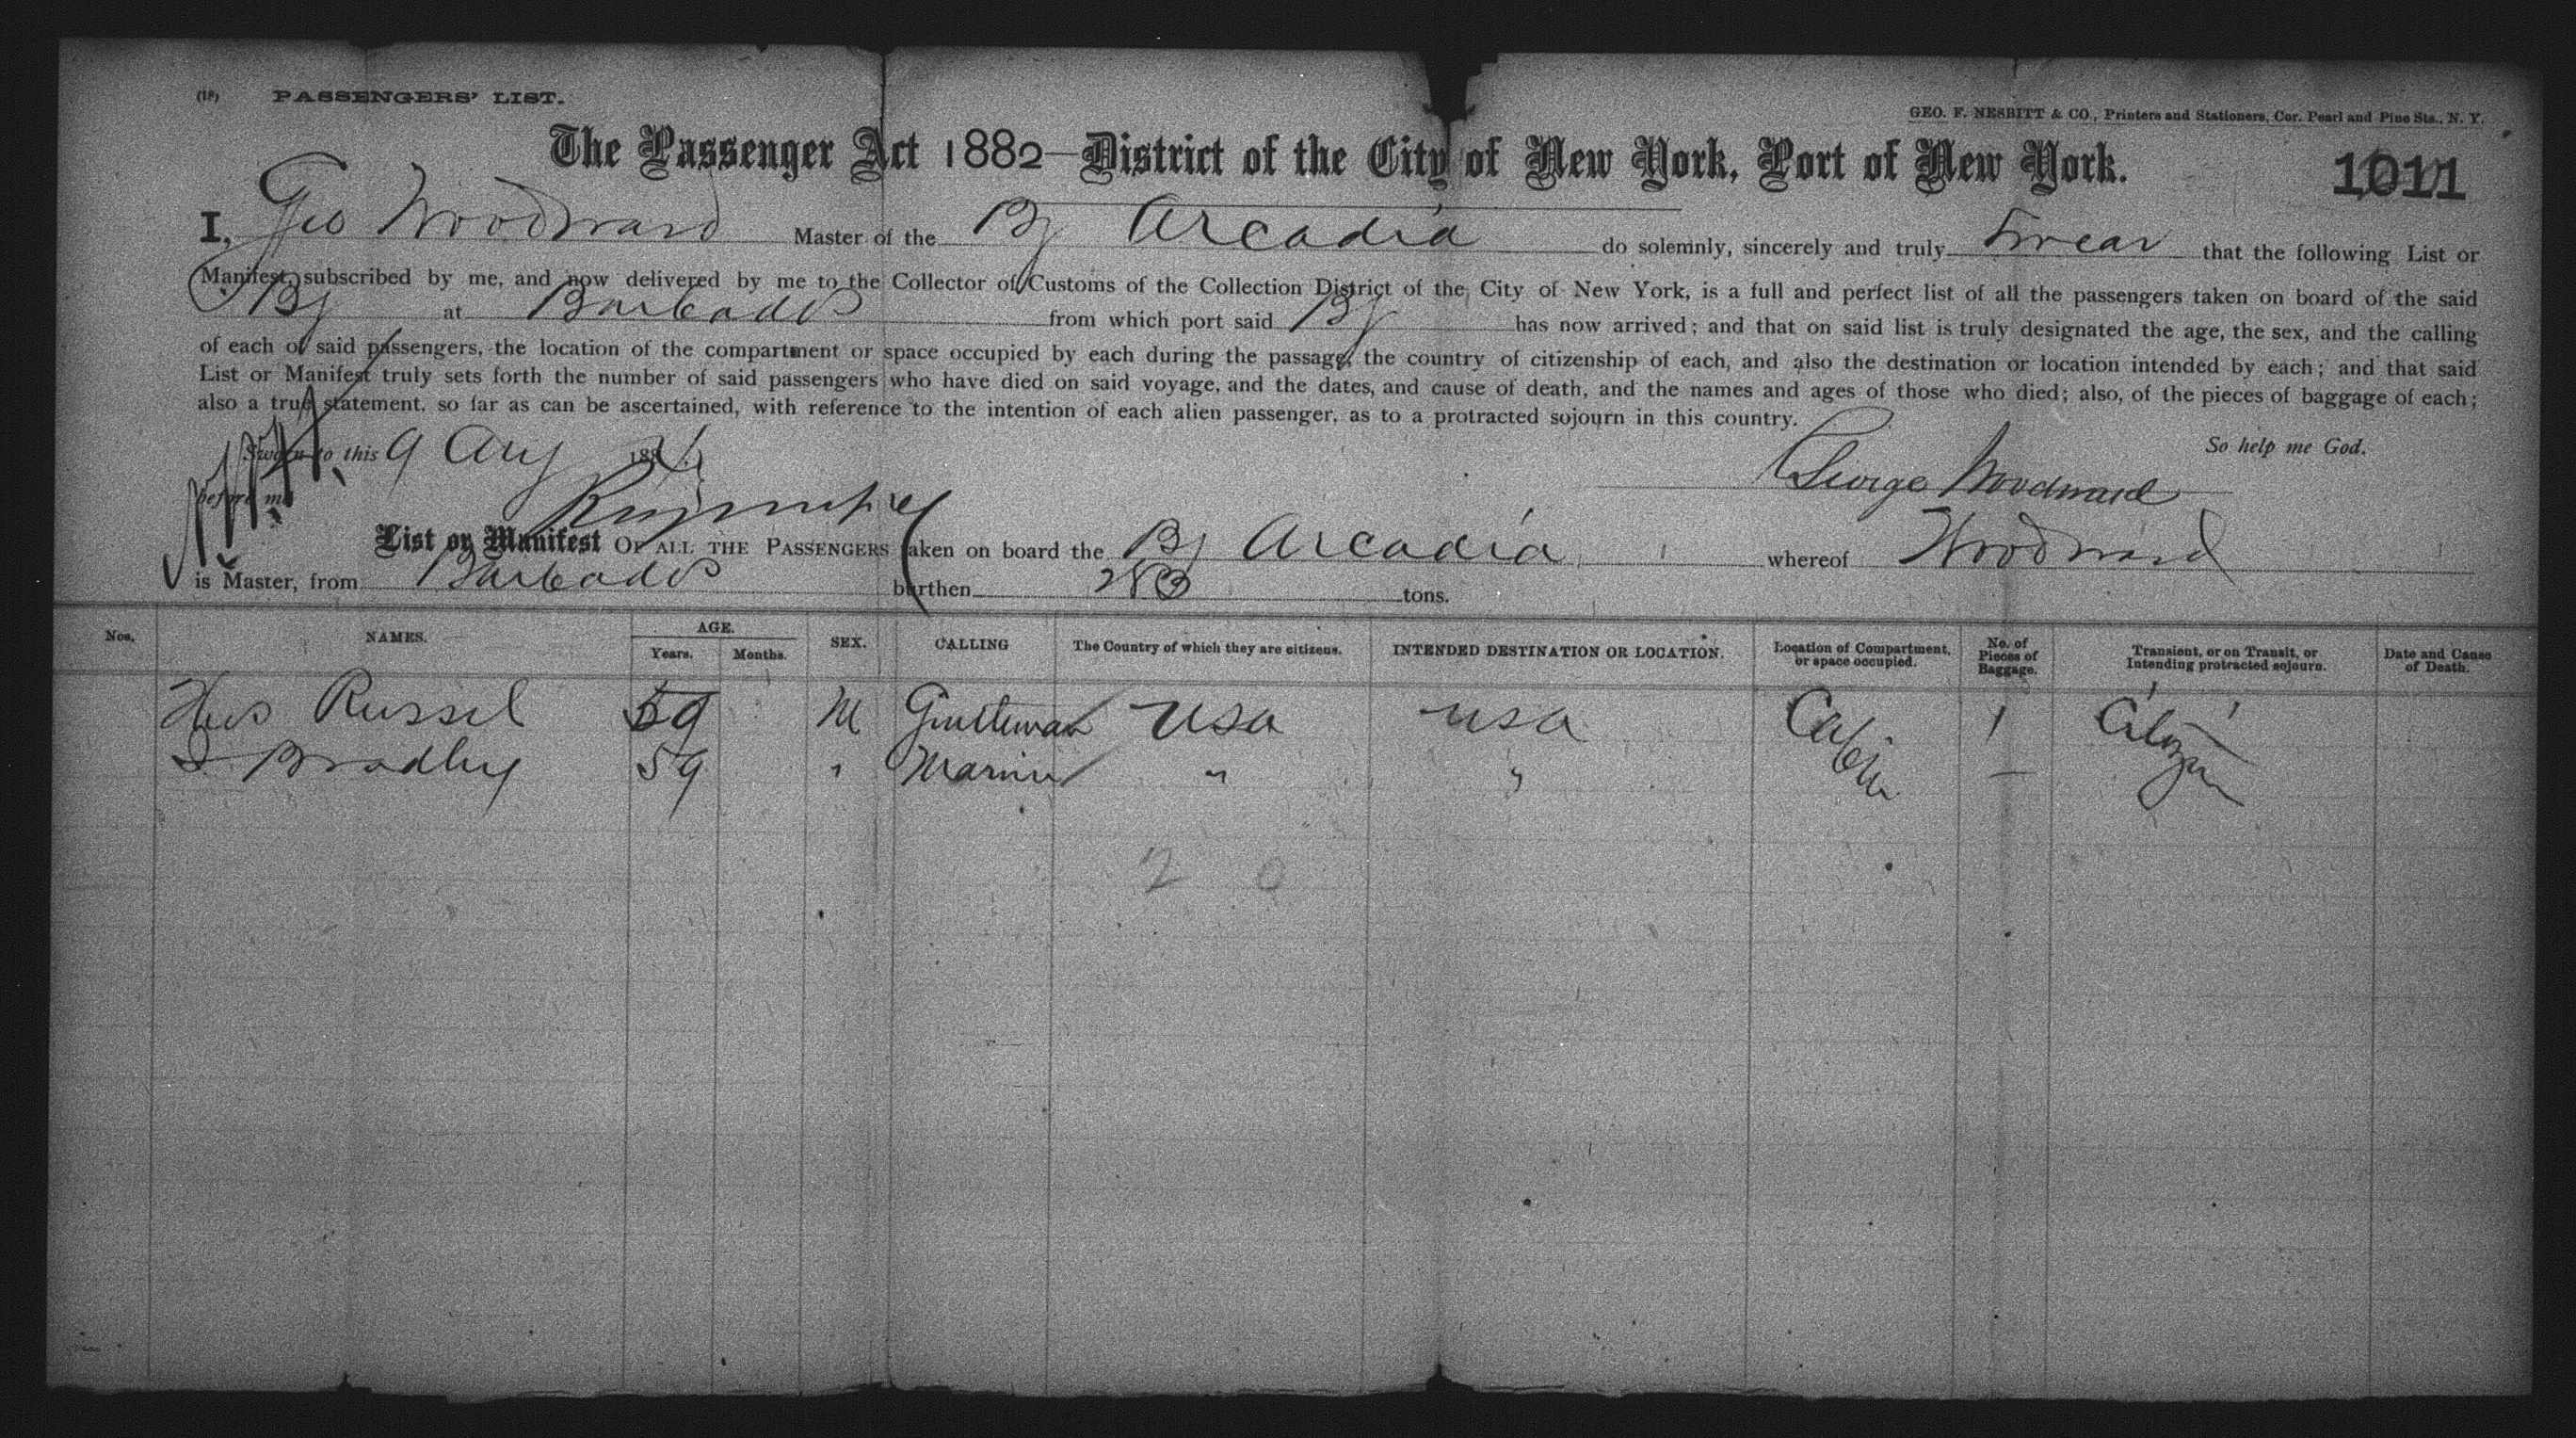 (18) PASSENGERS' LIST.
GEO. F. NESBITT & CO., Printers and Stationers, Cor. Pearl and Pine Sts., N. Y.
The Passenger Act 1882—District of the City of New York, Port of New York.
1011
I, Geo Woodward Master of the Bg Arcadia do solemnly, sincerely and truly Swear that the following List or
Manifest, subscribed by me, and now delivered by me to the Collector of Customs of the Collection District of the City of New York, is a full and perfect list of all the passengers taken on board of the said
Bg at Barbados from which port said Bg has now arrived; and that on said list is truly designated the age, the sex, and the calling
of each of said passengers, the location of the compartment or space occupied by each during the passage, the country of citizenship of each, and also the destination or location intended by each; and that said
List or Manifest truly sets forth the number of said passengers who have died on said voyage, and the dates, and cause of death, and the names and ages of those who died; also, of the pieces of baggage of each;
also a true statement, so far as can be ascertained, with reference to the intention of each alien passenger, as to a protracted sojourn in this country.
Sworn to this 9 Aug 188
So help me God.
before me
George Woodward
List or Manifest OF ALL THE PASSENGERS taken on board the Bg Arcadia whereof Woodward
is Master, from Barbados burthen tons.
Nos. NAMES. AGE. Years. Months. SEX. CALLING The Country of which they are citizens. INTENDED DESTINATION OR LOCATION. Location of Compartment, or space occupied. No. of Pieces of Baggage. Transient, or on Transit, or Intending protracted sojourn. Date and Cause of Death.
Russel 59 M Gentleman USA USA Cabin 1 Citizen
Bradley 59 " Mariner " " —
2 0